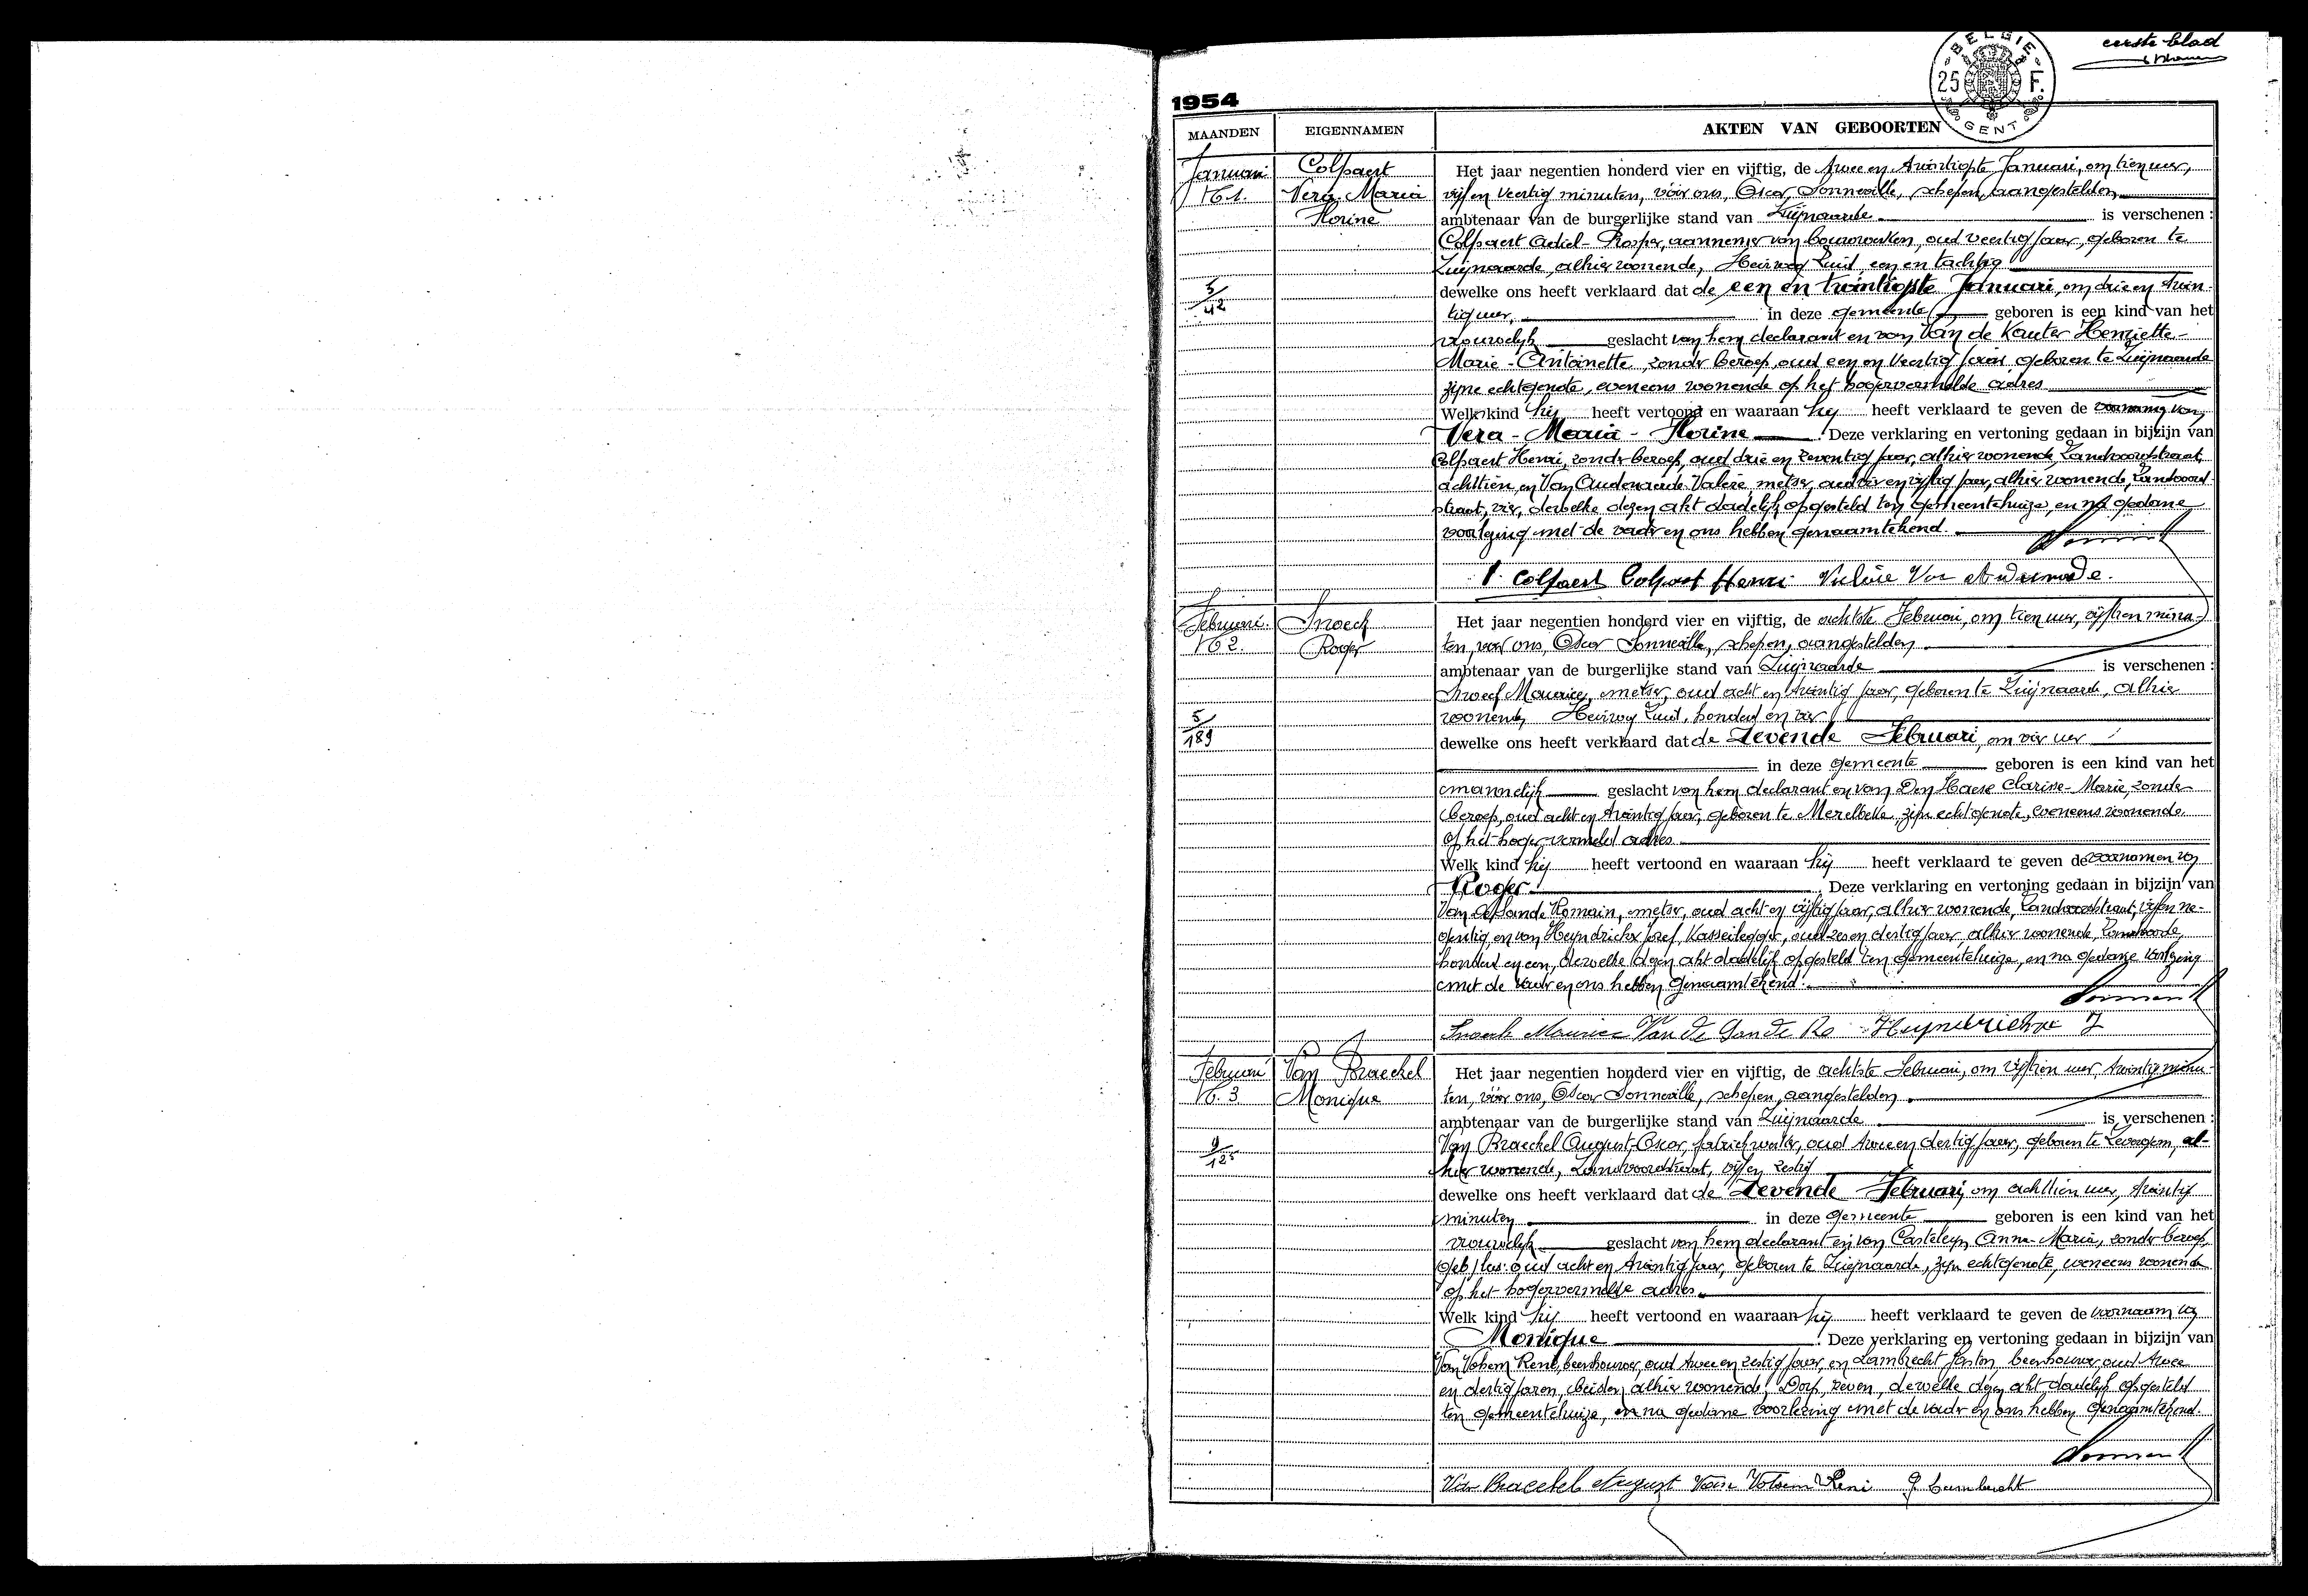 eerste blad
BELGIE
25 F.
GENT
1954
MAANDEN EIGENNAMEN AKTEN VAN GEBOORTEN
Januari Colpaert Het jaar negentien honderd vier en vijftig, de twee en twintigste Januari, om tien uur,
N° 1. Vera-Maria vijf en veertig minuten, vóór ons, Oscar Sonneville, schepen, aangestelden
Florine ambtenaar van de burgerlijke stand van Zwijnaarde is verschenen :
Colpaert Achiel-Prosper, aannemer van bouwwerken, oud veertig jaar, geboren te
Zwijnaarde, alhier wonende, Heirweg Zuid, een en tachtig
5/42 dewelke ons heeft verklaard dat de een en twintigste Januari, om drie en twin-
tig uur, in deze gemeente geboren is een kind van het
vrouwelijk geslacht van hem declarant en van Van de Kauter Henriette-
Marie-Antoinette, zonder beroep, oud een en veertig jaar geboren te Zwijnaarde
zijne echtgenote, eveneens wonende op het hogervermelde adres
Welk kind hij heeft vertoond en waaraan hij heeft verklaard te geven de voornamen van
Vera-Maria-Florine Deze verklaring en vertoning gedaan in bijzijn van
Colpaert Henri, zonder beroep, oud drie en zeventig jaar, alhier wonende, Zandvoordstraat,
achttien, en Van Oudenaarde Valère, metser, oud vier en vijftig jaar, alhier wonende, Zandvoord-
straat, vier, dewelke dezen akt dadelijk opgesteld ten gemeentehuize, en na gedane
voorlezing met de vader en ons hebben genaamtekend.
Colpaert Colpaert Henri Valère Van Oudenaarde.
Februari. Snoeck Het jaar negentien honderd vier en vijftig, de achtste Februari, om tien uur, vijftien minu-
N° 2. Roger ten, vóór ons, Oscar Sonneville, schepen, aangestelden
ambtenaar van de burgerlijke stand van Zwijnaarde is verschenen :
Snoeck Maurice, metser, oud acht en twintig jaar, geboren te Zwijnaarde, alhier
wonende, Heirweg Zuid, honderd en vier
5/189 dewelke ons heeft verklaard dat de Zevende Februari, om vier uur
in deze gemeente geboren is een kind van het
mannelijk geslacht van hem declarant en van Den Haese Clarisse-Marie, zonder
beroep, oud acht en twintig jaar, geboren te Merelbeke, zijn echtgenote, eveneens wonende
op het hoger vermeld adres
Welk kind hij heeft vertoond en waaraan hij heeft verklaard te geven de voornamen van
Roger Deze verklaring en vertoning gedaan in bijzijn van
Van de Sande Romain, metser, oud acht en vijftig jaar, alhier wonende, Zandvoordstraat, vijf en ne-
gentig, en van Heyndrickx Jozef, Kasseilegger, oud zes en dertig jaar, alhier wonende,
honderd en een, dewelke dezen akt dadelijk opgesteld ten gemeentehuize, en na gedane voorlezing
met de vader en ons hebben genaamtekend.
Snoeck Maurice Van de Sande Ro Heyndrickx J
Februari Van Braeckel Het jaar negentien honderd vier en vijftig, de achtste Februari, om vijftien uur, twintig minu-
N° 3. Monique ten, vóór ons, Oscar Sonneville, schepen, aangestelden
ambtenaar van de burgerlijke stand van Zwijnaarde is verschenen :
Van Braeckel August-Oscar, fabriekwerker, oud twee en dertig jaar, geboren te Zevergem, al-
9/125 hier wonende, Zandvoordstraat, vijf en zestig
dewelke ons heeft verklaard dat de Zevende Februari, om achttien uur, twintig
minuten in deze gemeente geboren is een kind van het
vrouwelijk geslacht van hem declarant en van Casteleyn Anna-Maria, zonder beroep,
oud acht en twintig jaar, geboren te Zwijnaarde, zijn echtgenote, eveneens wonende
op het hogervermelde adres.
Welk kind hij heeft vertoond en waaraan hij heeft verklaard te geven de voornaam van
Monique Deze verklaring en vertoning gedaan in bijzijn van
Van Volsem René, beenhouwer, oud twee en zestig jaar, en Lambrecht Gaston, beenhouwer, oud twee
en dertig jaren, beiden alhier wonende, Dorp, zeven, dewelke dezen akt dadelijk opgesteld
ten gemeentehuize, en na gedane voorlezing met de vader en ons hebben genaamtekend.
Van Braeckel August Van Volsem René G Lambrecht